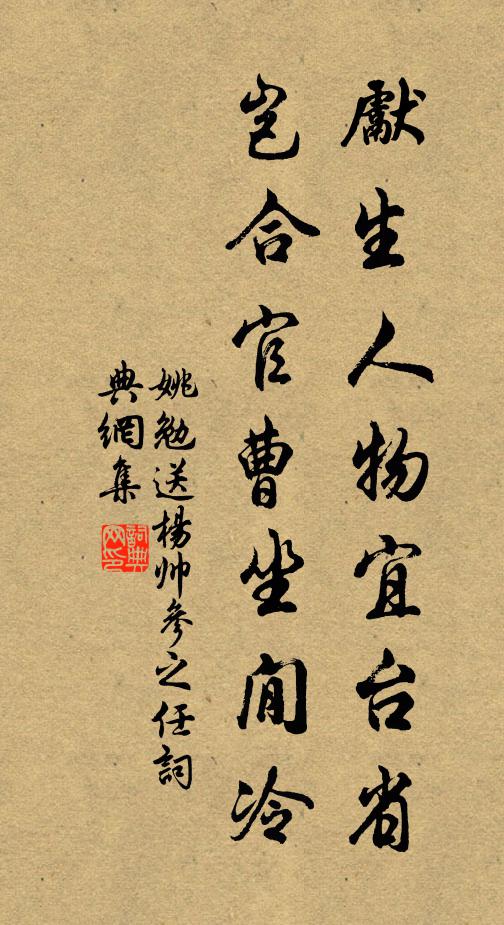 獻生人物宜台省
豈合官曹坐閒冷
姚勉送楊帅參之任詞
典網集
詞典
网印